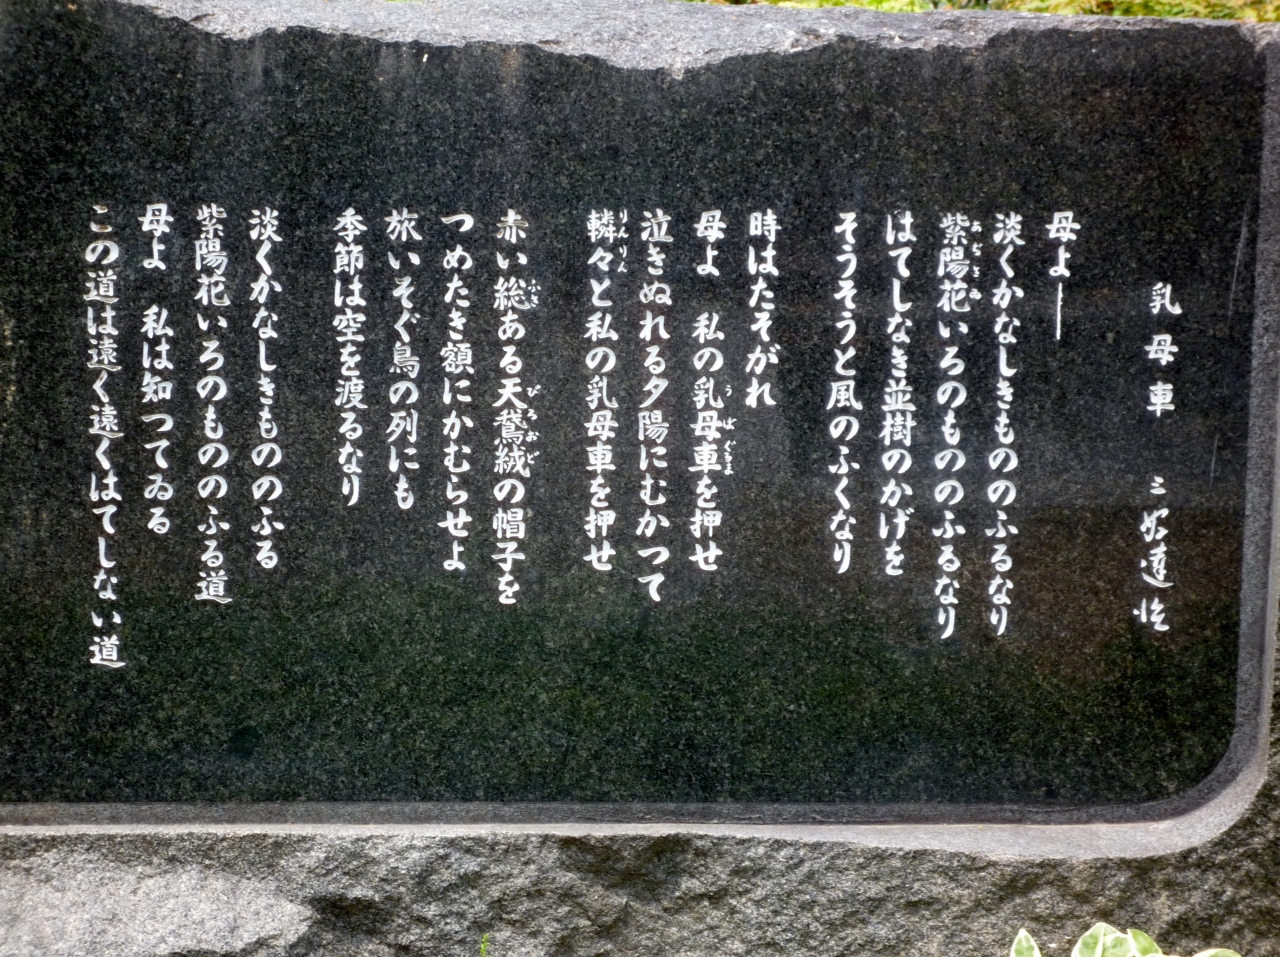 乳母車 三好達治
母よ――
淡くかなしきもののふるなり
紫陽花いろのもののふるなり
はてしなき並樹のかげを
そうそうと風のふくなり
時はたそがれ
母よ 私の乳母車を押せ
泣きぬれる夕陽にむかつて
轔々と私の乳母車を押せ
赤い総ある天鵞絨の帽子を
つめたき額にかむらせよ
旅いそぐ鳥の列にも
季節は空を渡るなり
淡くかなしきもののふる
紫陽花いろのもののふる道
母よ 私は知つてゐる
この道は遠く遠くはてしない道